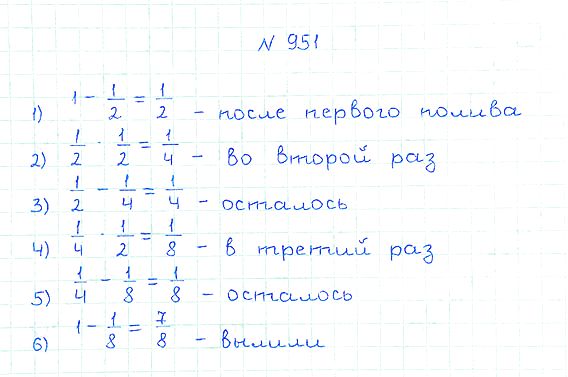 N 951
1) 1 - 1/2 = 1/2 - после первого полива
2) 1/2 · 1/2 = 1/4 - во второй раз
3) 1/2 - 1/4 = 1/4 - осталось
4) 1/4 · 1/2 = 1/8 - в третий раз
5) 1/4 - 1/8 = 1/8 - осталось
6) 1 - 1/8 = 7/8 - вылили